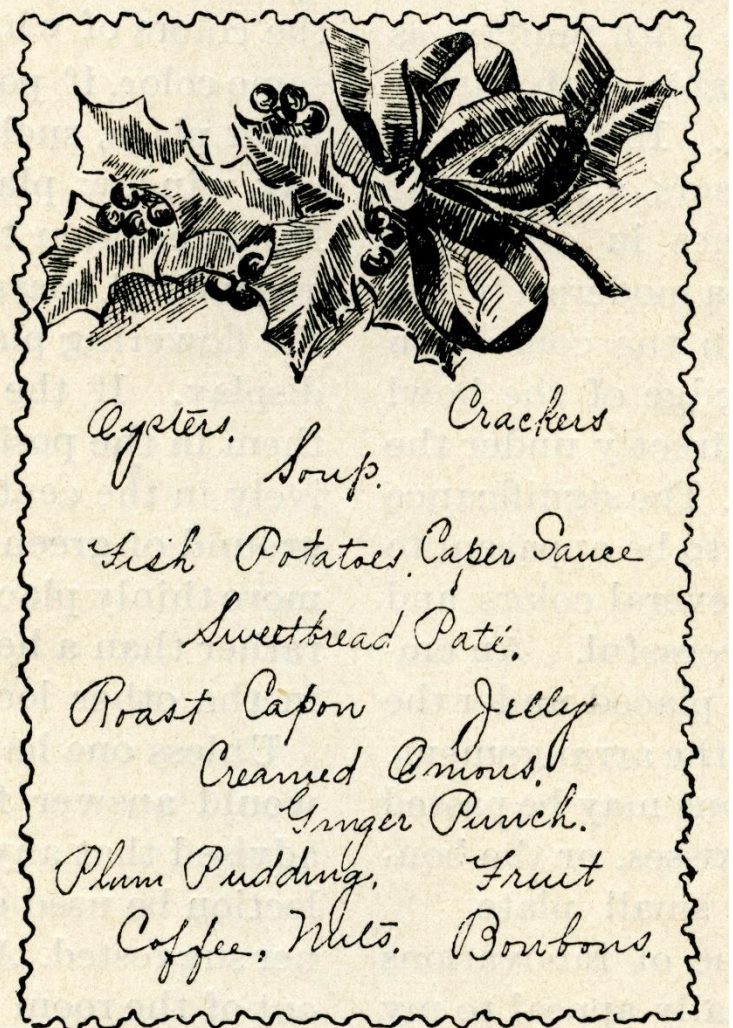 Oysters. Crackers
Soup.
Fish Potatoes, Caper Sauce
Sweetbread Paté.
Roast Capon Jelly
Creamed Onions.
Ginger Punch.
Plum Pudding. Fruit
Coffee. Nuts. Bonbons.